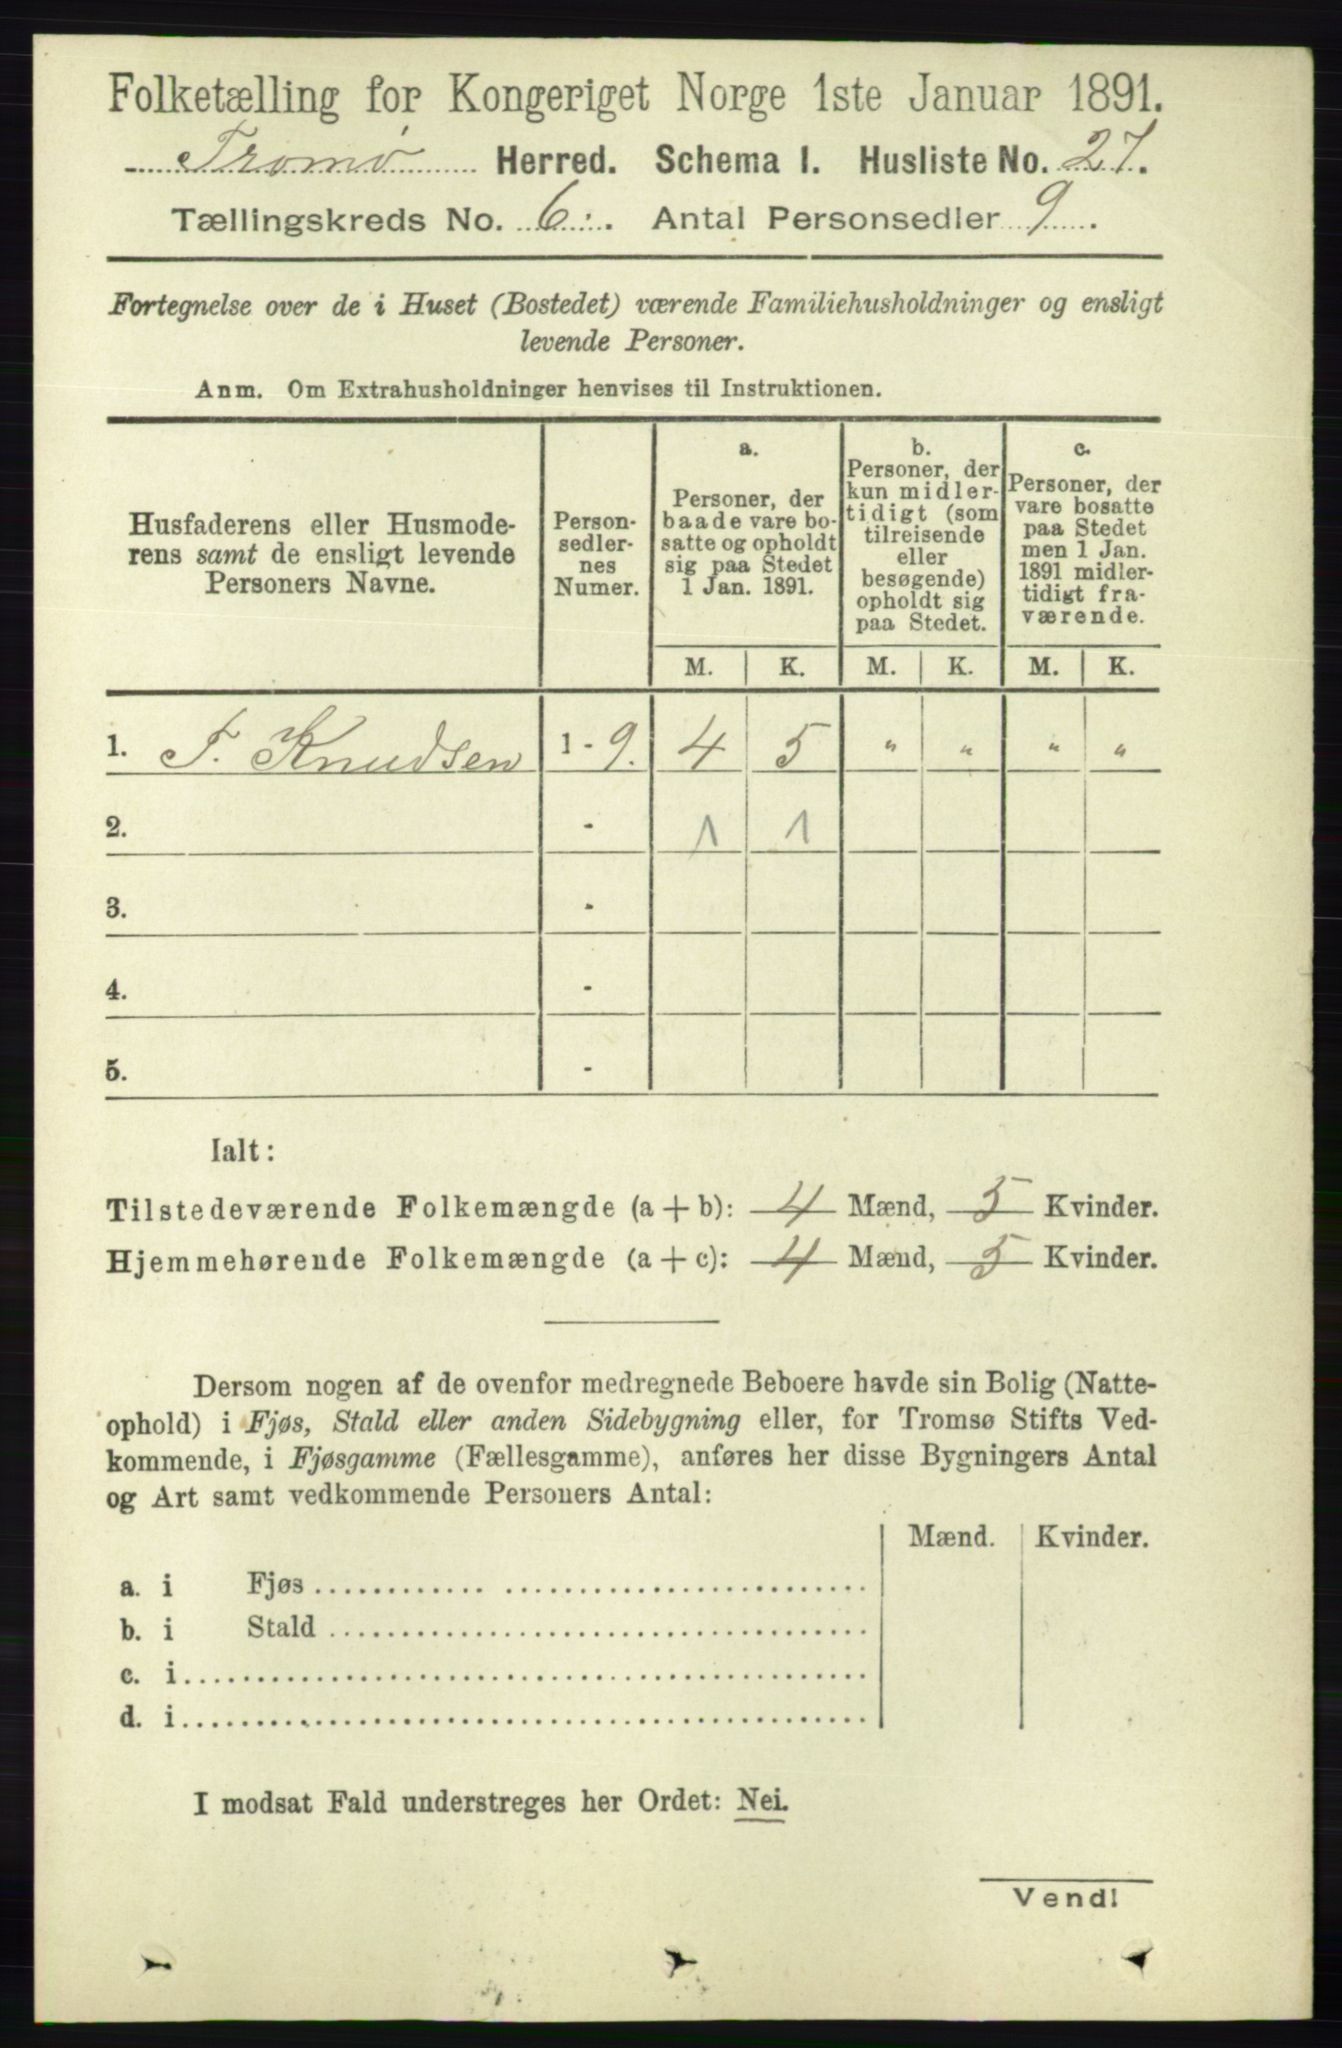 Folketælling for Kongeriget Norge 1ste Januar 1891.
Tromø Herred. Schema I. Husliste No. 27.
Tællingskreds No. 6. Antal Personsedler 9.
Fortegnelse over de i Huset (Bostedet) værende Familiehusholdninger og ensligt
levende Personer.
Anm. Om Extrahusholdninger henvises til Instruktionen.
Husfaderens eller Husmode-
rens samt de ensligt levende
Personers Navne.
Person-
sedler-
nes
Numer.
a.
Personer, der
baade vare bo-
satte og opholdt
sig paa Stedet
1 Jan. 1891.
b.
Personer, der
kun midler-
tidigt (som
tilreisende
eller
besøgende)
opholdt sig
paa Stedet.
c.
Personer, der
vare bosatte
paa Stedet
men 1 Jan.
1891 midler-
tidigt fra-
værende.
M. K. M. K. M. K.
1. F. Knudsen 1 - 9. 4 5 " " " "
2. - 1 1
3. -
4. -
5. -
Ialt:
Tilstedeværende Folkemængde (a + b): 4 Mænd, 5 Kvinder.
Hjemmehørende Folkemængde (a + c): 4 Mænd, 5 Kvinder.
Dersom nogen af de ovenfor medregnede Beboere havde sin Bolig (Natte-
ophold) i Fjøs, Stald eller anden Sidebygning eller, for Tromsø Stifts Ved-
kommende, i Fjøsgamme (Fællesgamme), anføres her disse Bygningers Antal
og Art samt vedkommende Personers Antal:
Mænd. Kvinder.
a. i Fjøs
b. i Stald
c. i
d. i
I modsat Fald understreges her Ordet: Nei.
Vend!